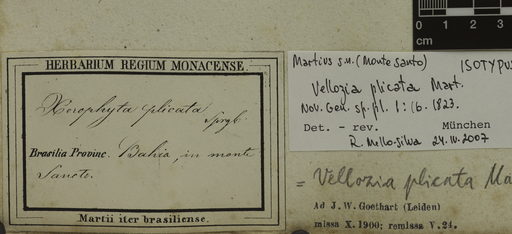 HERBARIUM REGIUM MONACENSE.
Xerophyta plicata
Sprgb.
Brasilia Provinc. Bahia, in monte
Sancto.
Martii iter brasiliense.
0 1 2 3
cm
Martius s.n. (Monte Santo) ISOTYPUS
Vellozia plicata Mart.
Nov. Gen. sp. pl. 1: 16. 1823.
Det. - rev. München
R. Mello-Silva 24.IV.2007
= Vellozia plicata Ma
Ad J. W. Goethart (Leiden)
missa X. 1900; remissa V. 24.